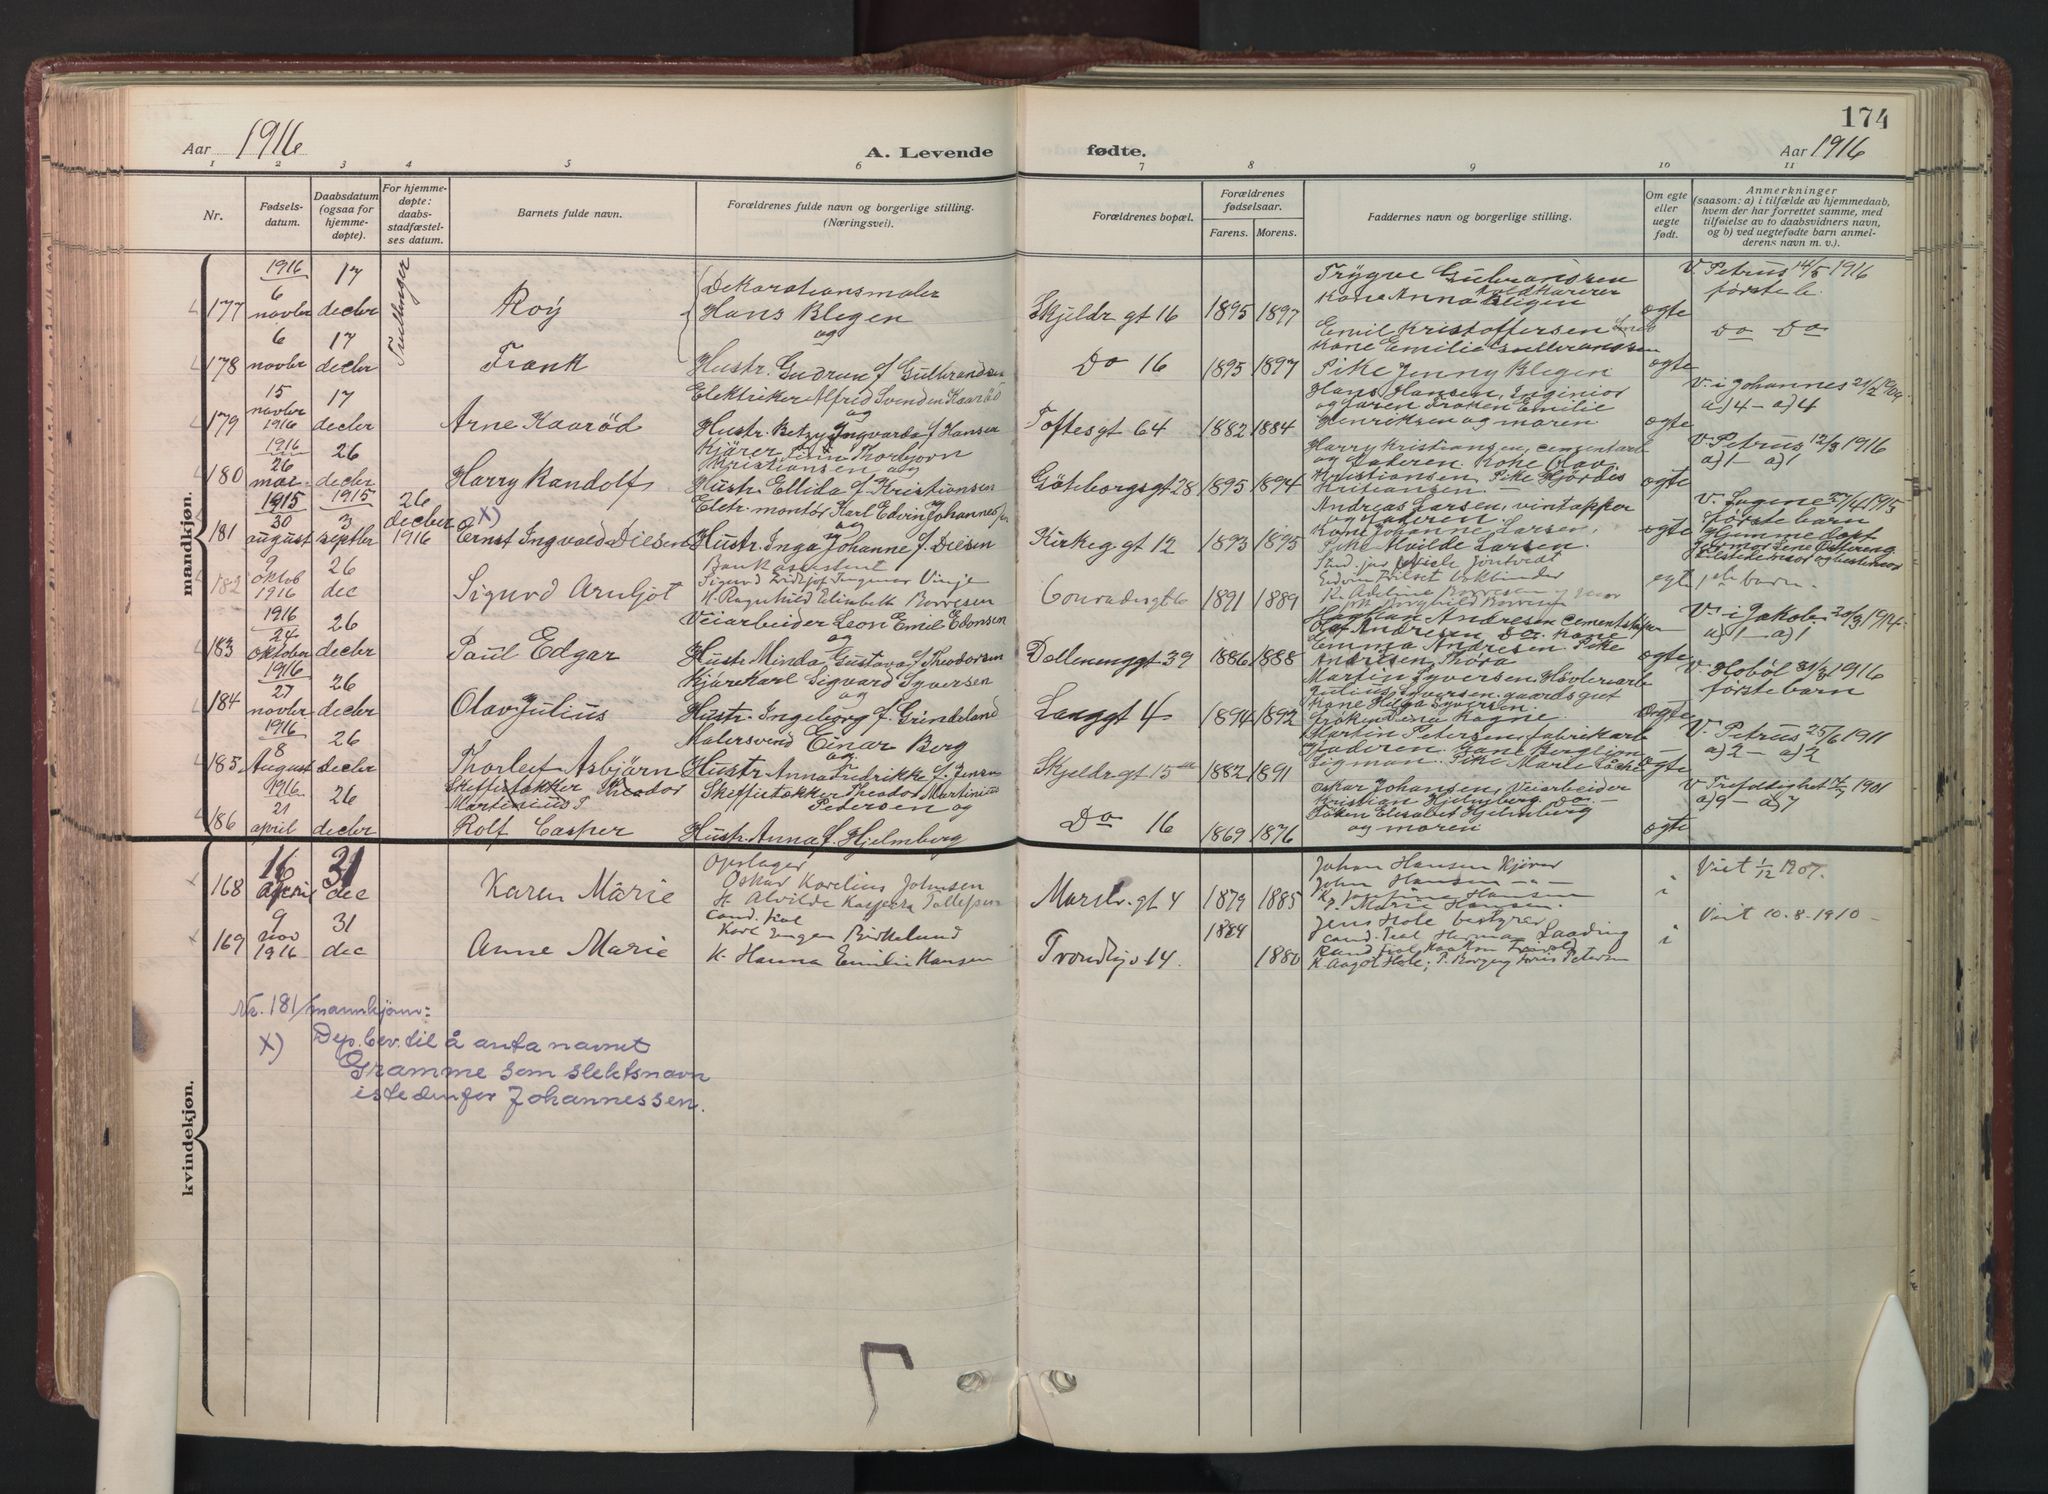 174
Aar 1916
A. Levende
fødte.
Aar 1916
1 2 3 4 5 6 7 8 9 10 11
Nr.
Fødsels-
datum.
Daabsdatum
(ogsaa for
hjemme-
døpte).
For hjemme-
døpte:
daabs-
stadfæstel-
ses datum.
Barnets fulde navn.
Forældrenes fulde navn og borgerlige stilling.
(Næringsvei).
Forældrenes bopæl.
Forældrenes
fødselsaar.
Farens. Morens.
Faddernes navn og borgerlige stilling.
Om egte
eller
uegte
født.
Anmerkninger
(saasom: a) i tilfælde av hjemmedaab,
hvem der har forrettet samme, med
tilføielse av to daabsvidners navn,
og b) ved uegtefødte barn anmel-
derens navn m. v.).
mandkjøn.
177
1916
6
novbr
17
decbr
Tvillinger
Roy
Dekorationsmaler
Hans Blegen
og
Skjeldr gt 16
1895 1897
Trygve Gulbrandsen
Kone Anna Blegen
ægte
V. Petrus 14/5 1916
første b.
178
6
novbr
17
decbr
Frank
Hustr. Gudrun f Gulbrandsen
Do 16
1895 1897
Emil Kristoffersen
Kone Emilie Gulbrandsen
Pike Jenny Blegen
ægte
Do Do
179
15
novbr
1916
17
decbr
Arne Kaarød
Elektriker Alfred Svendsen Kaarød
og
Hustr. Betzy Ingvarda f Hansen
Toftesgt 64
1882 1884
Hans Hansen, Inginiør
og faren Frøken Emilie
Henriksen og moren
ægte
V. i Johannes
a) 4 – a) 4
180
1916
26
mar
26
decbr
Harry Randolf
Kjører Finn Thorbjørn
Kristiansen og
Hustr. Ellida f. Kristiansen
Göteborgsgt 28
1895 1894
Harry Kristiansen, cementarb
og faderen. Kone Olav
Kristiansen. Pike Hjørdis
Kritiansen
ægte
V. Petrus 12/3 1916
a) 1 – a) 1
181
1915
30
august
1915
3
septbr
26
decber
1916
X)
Ernst Ingvald Diesen
Eletr. montør Karl Edvin Johannes
og
Hustr. Inga Johanne f. Diesen
Kirkeg gt 12
1893 1895
Andreas Larsen, vintapper
og faderen.
Kone Johanne Larsen,
Pike Hvilde Larsen.
ægte
V. Sagene 27/4 1915
første barn
Hjemmedøpt
182
9
oktob
1916
26
dec
Sigurd Arnljot
Bankassistent
Sigurd Fridtjof Ingemar Vinje
H. Ragnhild Elisabeth Borresen
Conradisgt 6
1891 1889
Edvin bokbinder
egt
barn.
183
1916
24
oktober
26
decber
Paul Edgar
Veiarbeider Leon Emil Edonsen
og
Hustr Minda Gustava f Theodorsen
Dællenenggt 39
1886 1888
Haktlan Andresen cementstøper
Olaf Andresen do. Kone
Emma Andresen Pike
Andresen Thora
ægte
V. i Jakob 20/3 1914
a) 1 – a) 1
184
1916
27
novber
26
decbr
Olav Julius
Kjørekarl Sigvard Syversen
og
Hustr. Ingeborg f. Grindeland
Langgt 4
1894 1892
Martin Syversen Høvleriarb
Julius Syversen. gaardsgut
Kone Helga Syversen.
Frøken Lina Ragne.
ægte
V. Hobøl 31/3 1916
første barn
185
1916
8
August
26
decber
Thorleif Asbjørn
Malersvend Einar Berg
og
Hustr Anna Fredrikke f. Jensen
Skjeldr gt 15
1882 1891
Martin Petersen, fabrikarb
Faderen.
Sigman. Pike Marie
ægte
V. Petrus 25/6 1911
a) 2 – a) 2
186
1916
21
april
26
decber
Skeffistokker Theodor
Martinius P
Rolf Casper
Skeffistokker Theodor Martinius
Pedersen og
Hustr. Anna f. Hjelmberg
Do 16
1869 1876
Oskar Johansen, Veiarbeider
Kristian Hjelmberg Do. –
Frøken Elisabet Hjelmberg
og moren
ægte
V Trefoldighet 1901
a) 9 – a) 7
kvindekjøn.
168
16
April
31
dec
Karen Marie
Opslager
Oskar Karelius Johnsen
H Alvilde Kaspera Tollefsen
Marstr. gt 4
1879 1885
Johan Hansen Kjører
John Hansen – " –
K. Hansen
P. Marie Hansen.
i
Viet 1/12 1907.
169
9
nov
1916
31
dec
Anne Marie
cand. real
Karl Eugen Birkelund
K. Hanna Emilie Hansen
Trondhjv 14.
1884
1880
Jens Hole bestyrer
cand. real Herman Laading
K Aagot Hole; P. Borgny Petersen
i
Viet 10-8-1910 –
Nr. 181/mannkjønn:
X) Dep. bev. til å anta navnet
Gramme som slektsnavn
istedenfor Johannessen.